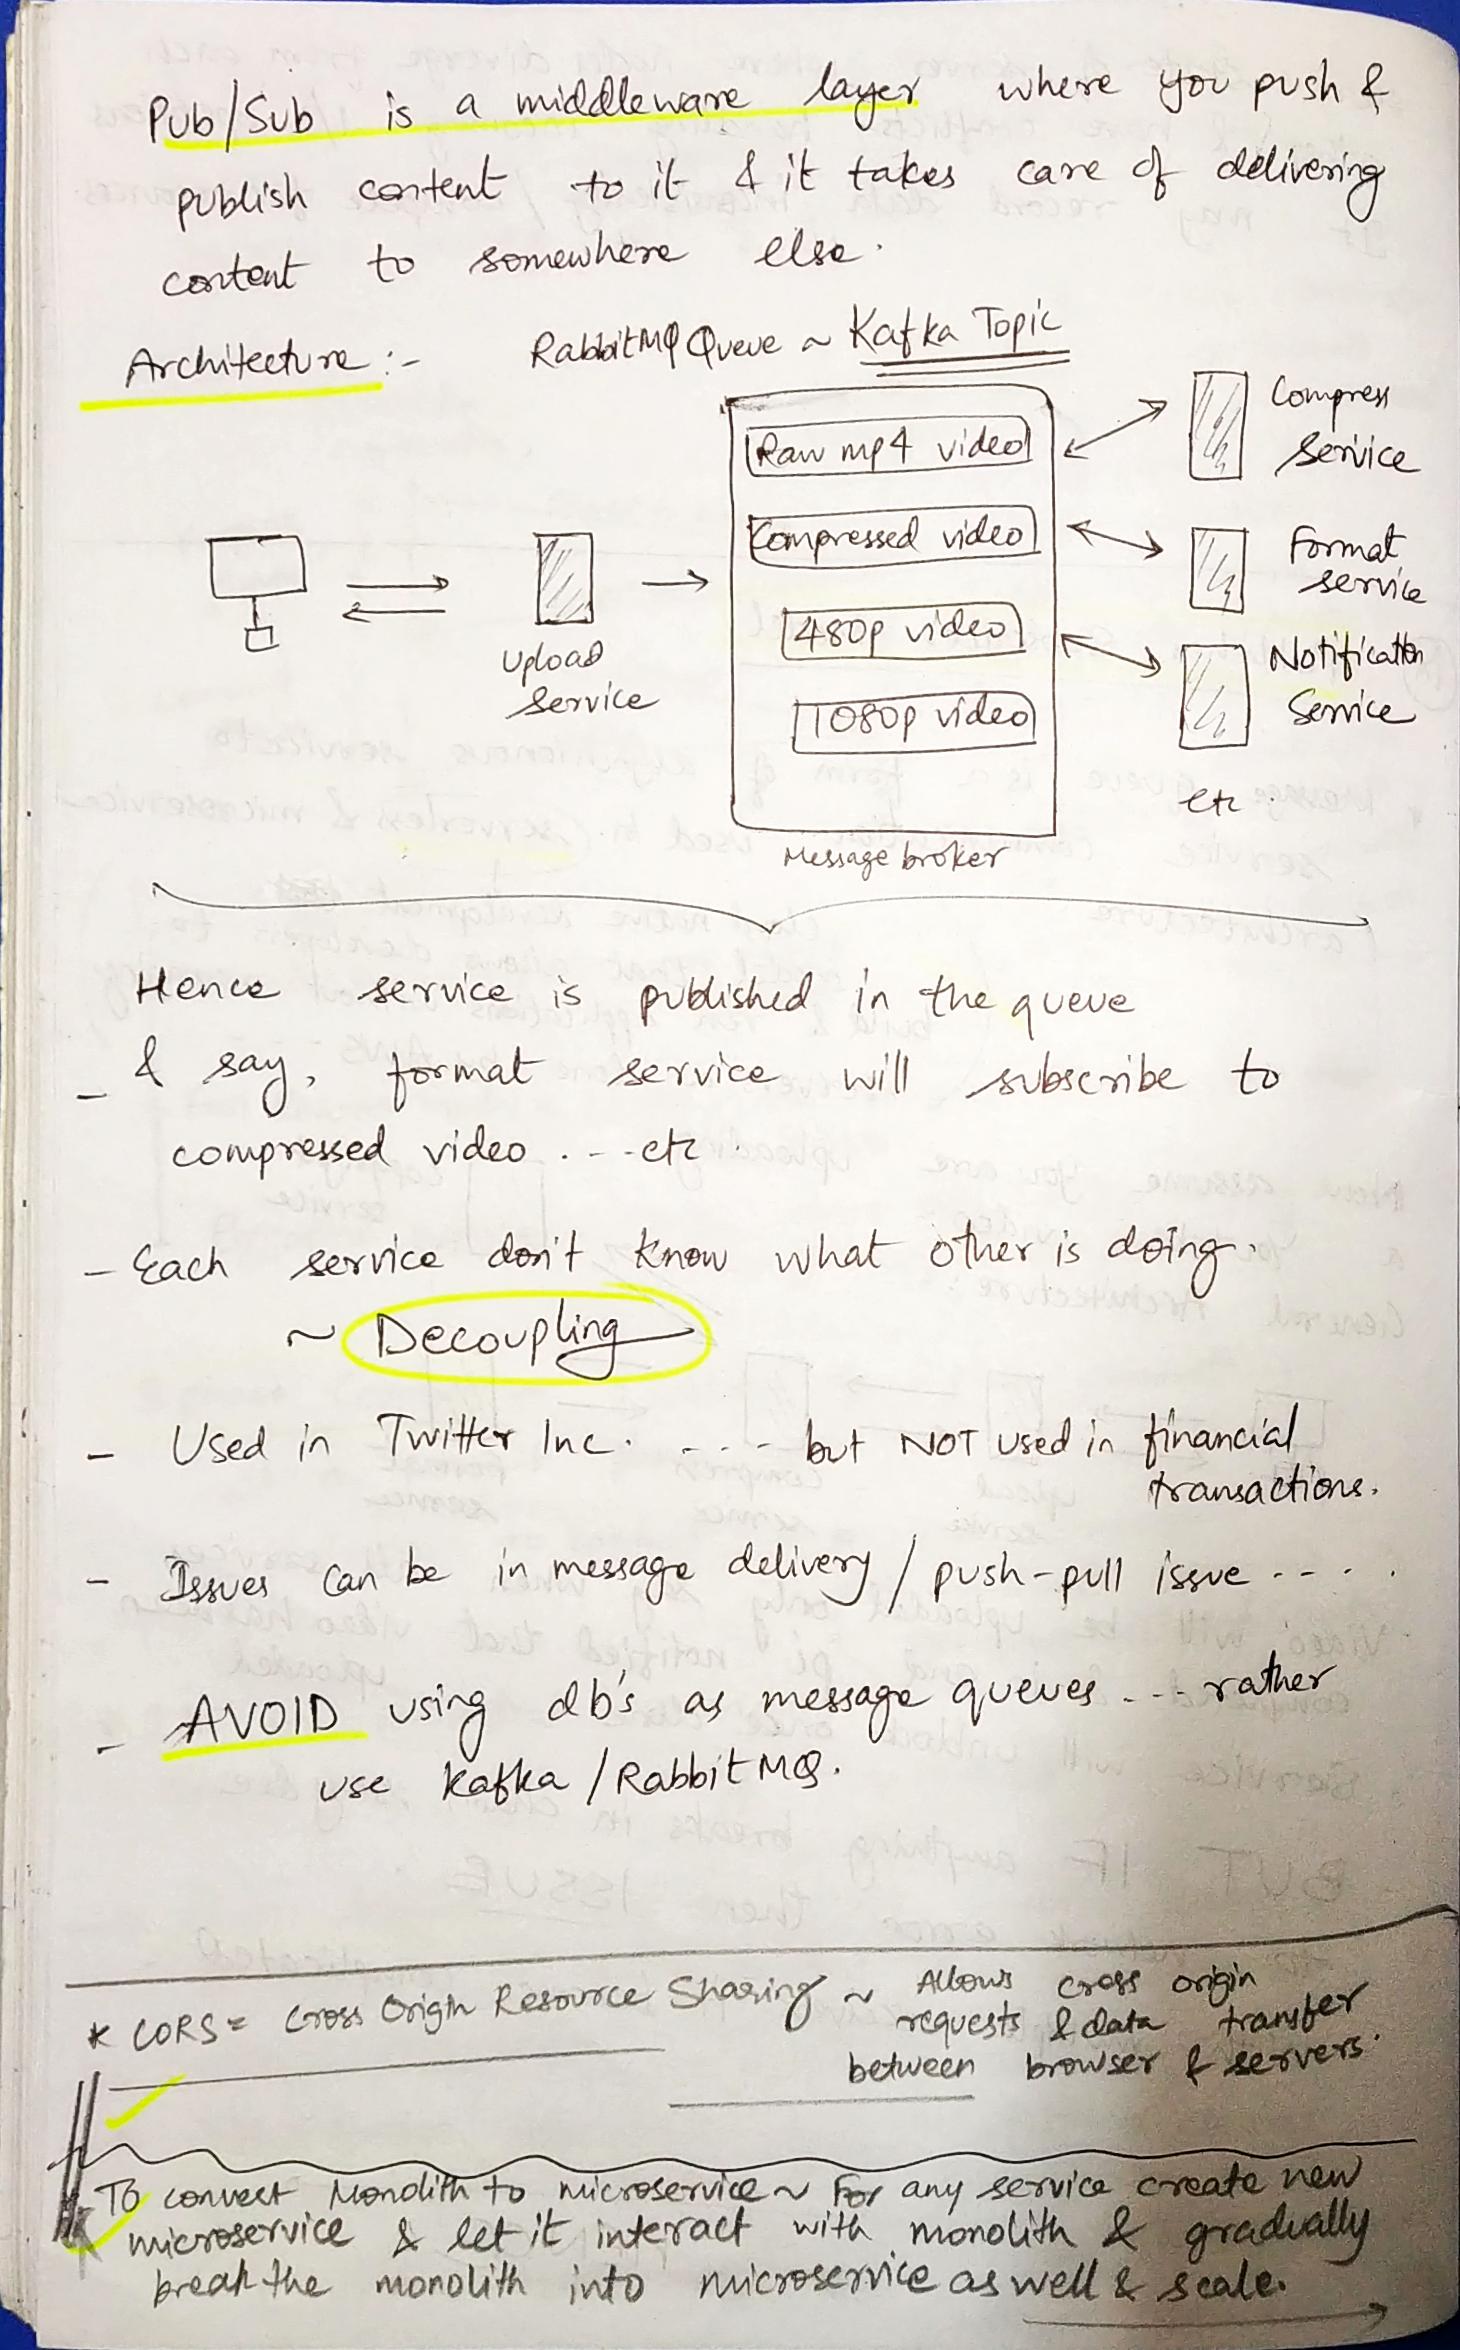 Pub/Sub is a middleware layer where you push &
publish content to it & it takes care of delivering
content to somewhere else.
Architecture :-
RabbitMQ Queue ~ Kafka Topic
Raw mp4 video
Compressed video
480p video
1080p video
Message broker
Upload
Service
Compress
Service
Format
service
Notification
Service
etc.
Hence service is published in the queue
- & say, format service will subscribe to
compressed video . - - - etc.
- Each service don't know what other is doing.
~ Decoupling
- Used in Twitter Inc. - - - but NOT used in financial
transactions.
- Issues can be in message delivery / push-pull issue - - - .
- AVOID using db's as message queues - - - rather
use Kafka / RabbitMQ.
* CORS = Cross Origin Resource Sharing ~ Allows cross origin
requests & data transfer
between browser & servers.
To convert Monolith to microservice ~ For any service create new
microservice & let it interact with monolith & gradually
break the monolith into microservice as well & scale.